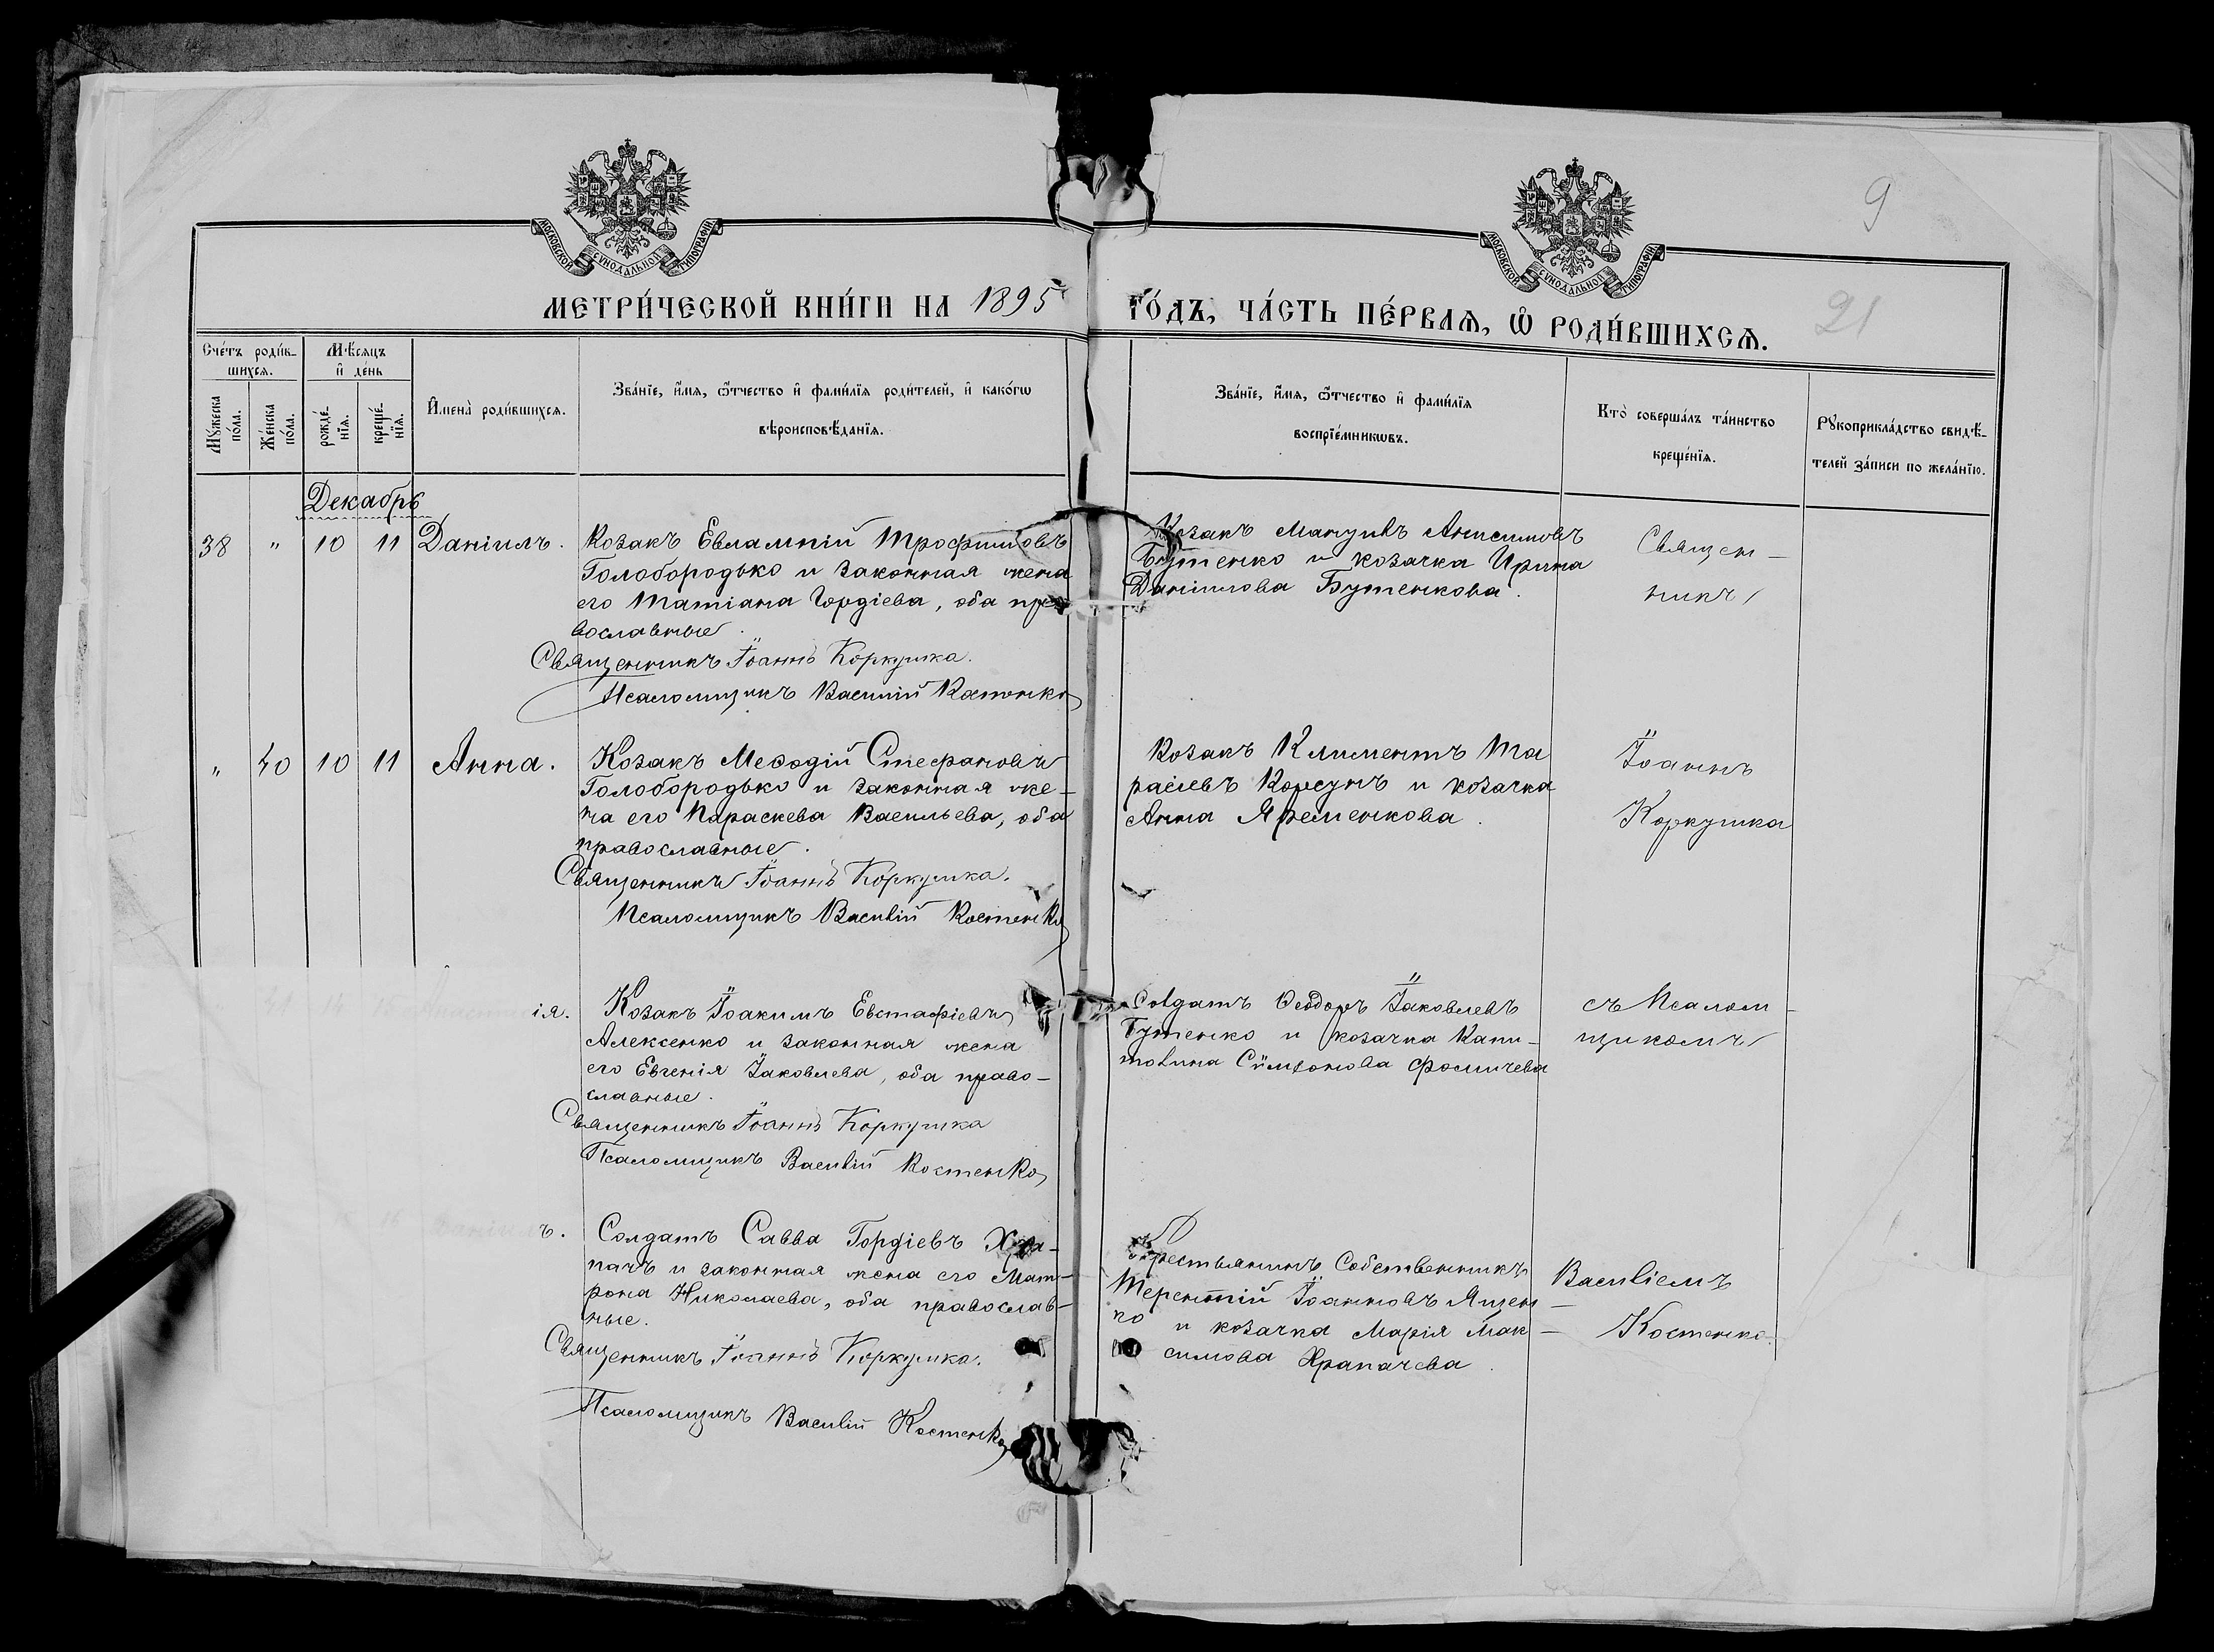 9
21
МОСКОВСКОЙ СѴНОДАЛЬНОЙ ТИПОГРАФІИ.
МОСКОВСКОЙ СѴНОДАЛЬНОЙ ТИПОГРАФІИ.
МЕТРИ́ЧЕСКОЙ КНИ́ГИ НА 1895 ГО́ДЪ, ЧА́СТЬ ПЕ́РВАѦ, Ѡ҆ РОДИ́ВШИХСѦ.
Сче́тъ роди́в-
шихсѧ.
Мѣ́сѧцъ
и҆ де́нь
Мꙋ́жеска
по́ла.
Же́нска
по́ла.
рожде́-
нїѧ.
креще́-
нїѧ.
И҆мена̀ роди́вшихсѧ.
Зва́нїе, и҆́мѧ, ѻ҆́тчество и҆ фами́лїѧ роди́телей, и҆ како́гѡ
вѣроисповѣ́данїѧ.
Зва́нїе, и҆́мѧ, ѻ҆́тчество и҆ фами́лїѧ
воспрїе́мникѡвъ.
Кто̀ соверша́лъ та́инство
креще́нїѧ.
Рꙋкоприкла́дство свидѣ́-
телей за́писи по жела́нїю.
Декабрь
38 " 10 11 Даніилъ.
Козакъ Евлампій Трофимовъ
Голобородько и законная жена
его Татіана Гордіева, оба пра
вославные.
Священникъ Іоаннъ Коркушка.
Псаломщикъ Василій Костенко
Козакъ Мануилъ Анисимовъ
Бутенко и козачка Ирина
Даніилова Бутенкова.
Священ-
никъ
" 40 10 11 Анна.
Козакъ Меѳодій Стефановъ
Голобородько и законная же-
на его Параскева Васильева, оба
православные.
Священникъ Іоаннъ Коркушка.
Псаломщикъ Василій Костенко
Козакъ Климентъ Та
расіевъ Корсунъ и козачка
Анна Яременкова.
Іоаннъ
Коркушка
ія.
Козакъ Іоакимъ Евстафіевъ
Алексенко и законная жена
его Евгенія Іаковлева, оба право-
славные.
Священникъ Іоаннъ Коркушка
Псаломщикъ Василій Костенко
Солдатъ Ѳеодоръ Іаковлевъ
Бутенко и козачка Капи-
толина Сѵмеонова Фомичева
съ Псалом-
щикомъ
ъ.
Солдатъ Савва Гордіевъ Хра-
пачъ и законная жена его Мат-
рона Николаева, оба православ-
ные.
Священникъ Іоаннъ Коркушка.
Псаломщикъ Василій Костенко
Крестьянинъ Собственникъ
Терентій Іоанновъ Яцен-
ко и козачка Марія Мак-
симова Храпачева.
Василіемъ
Костенко.